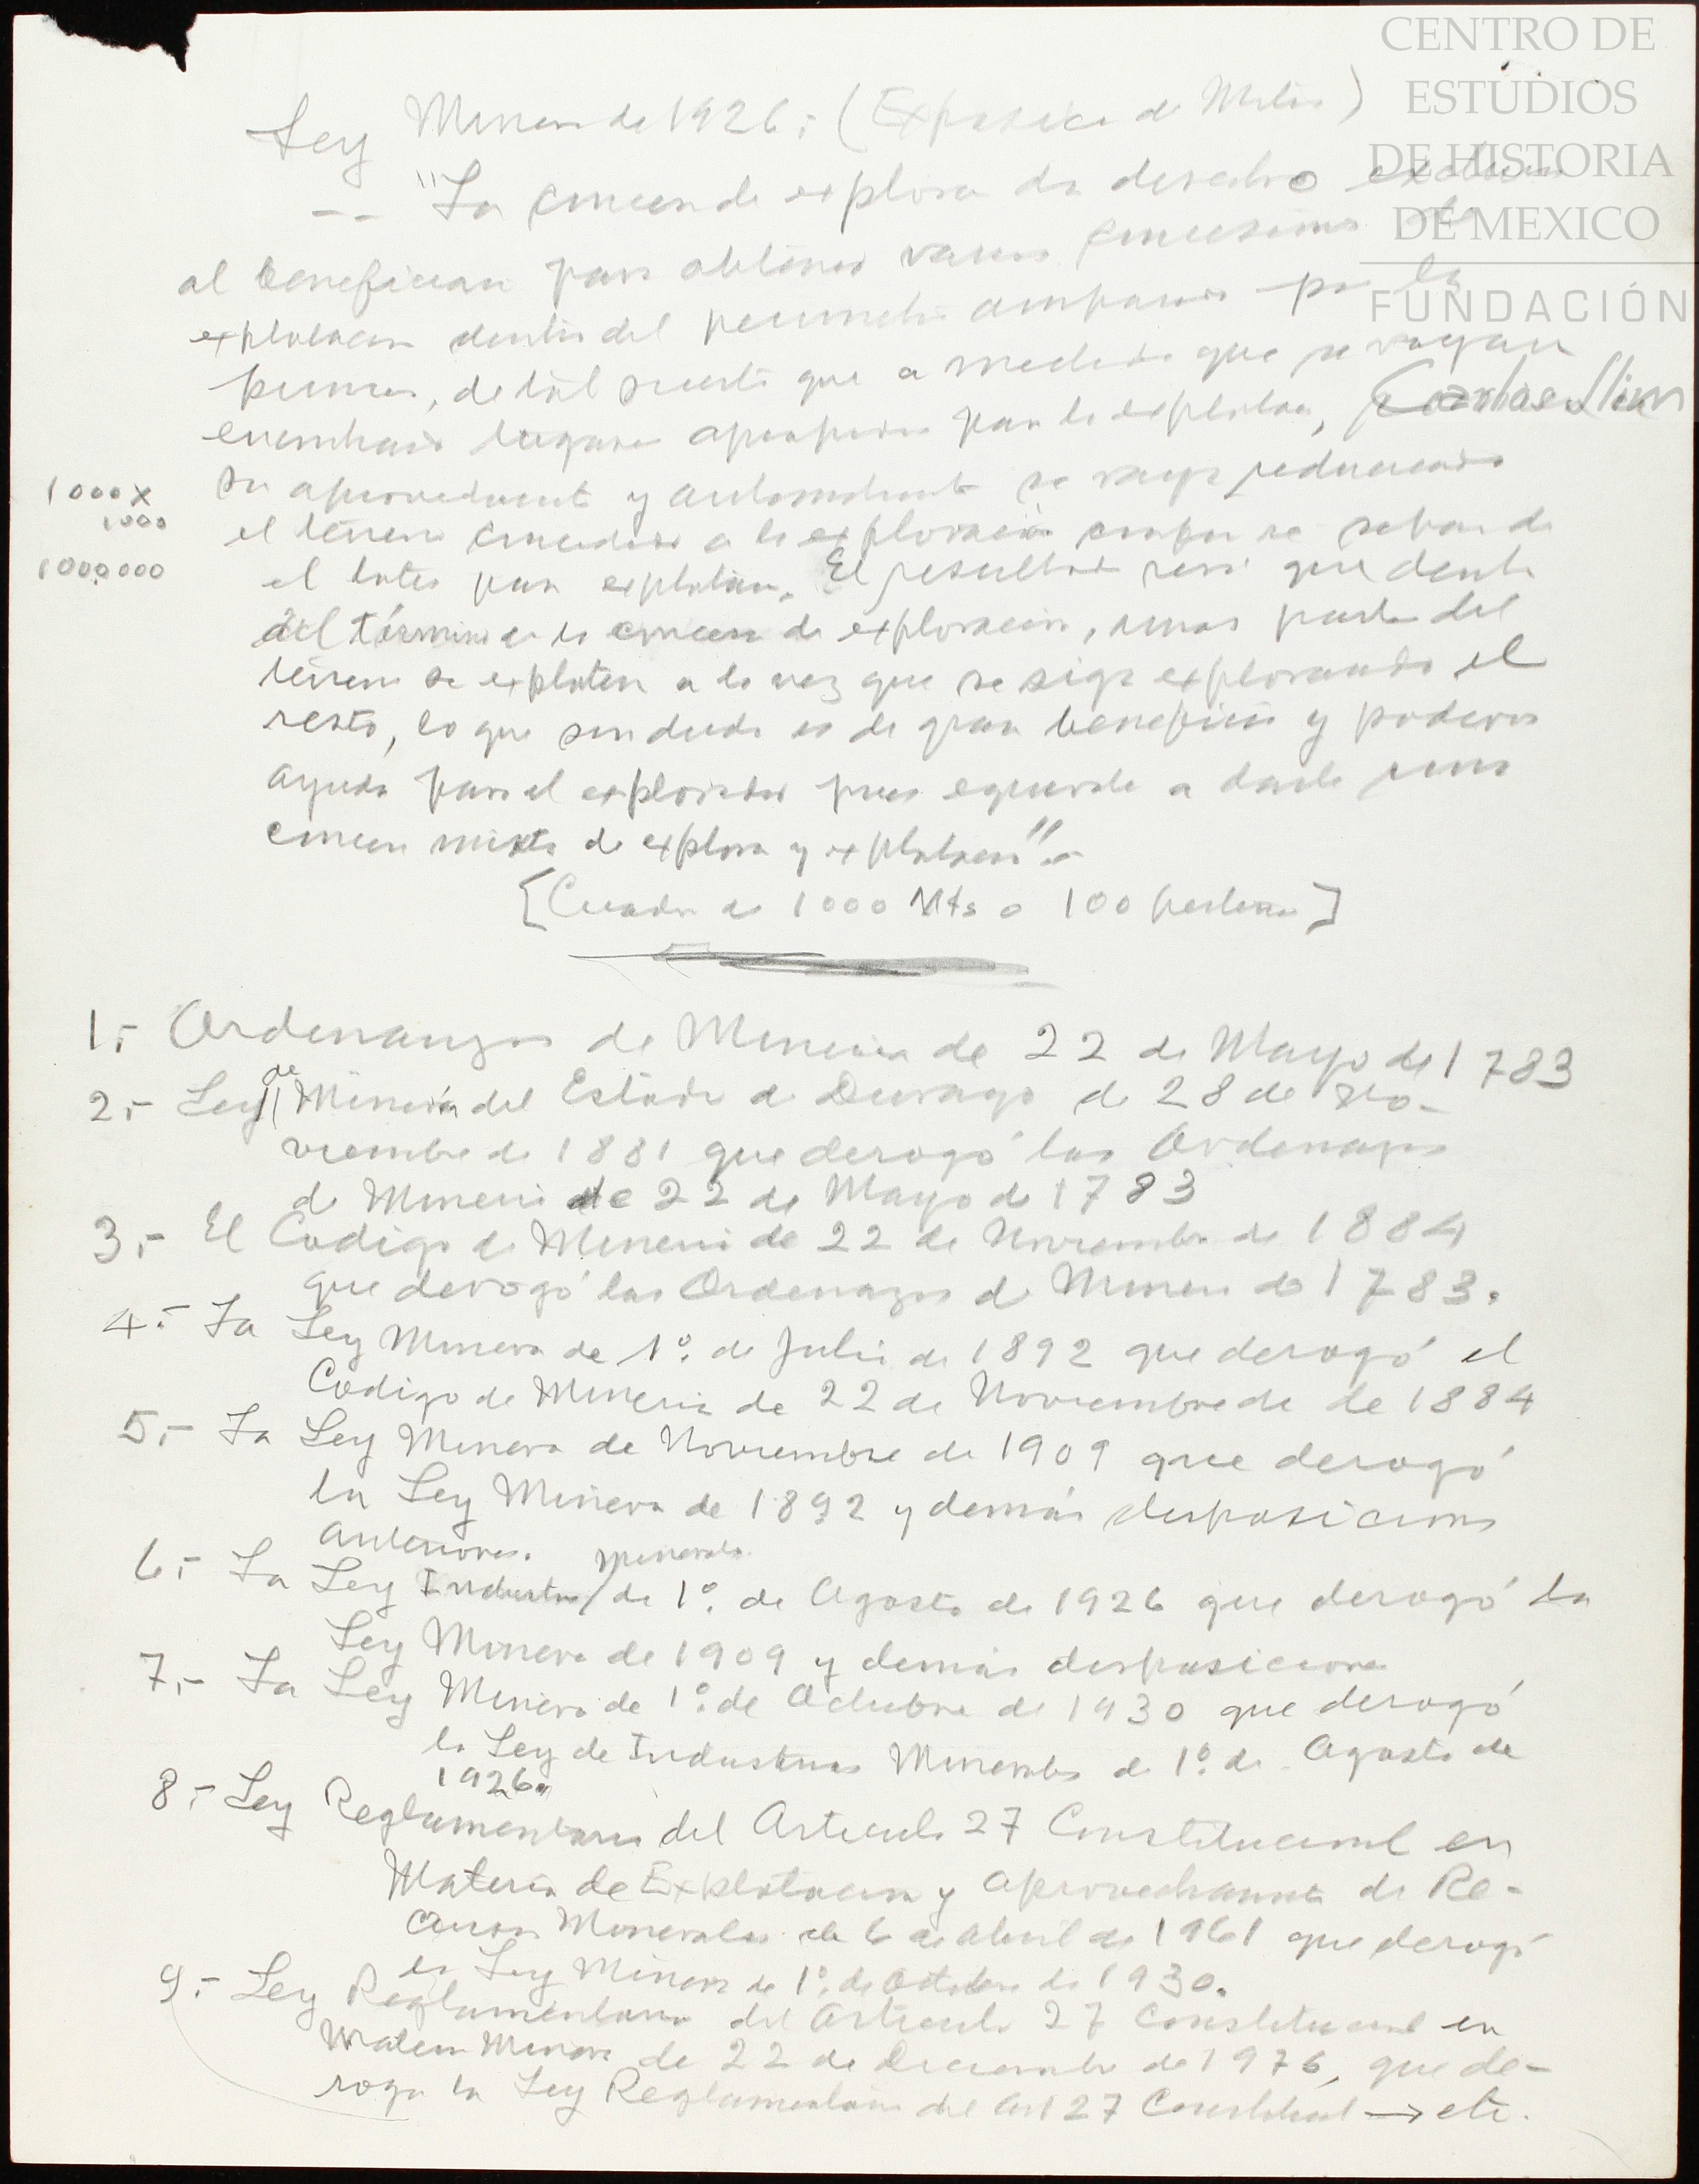 CENTRO DE
ESTUDIOS
DE HISTORIA
DE MEXICO
FUNDACIÓN
Carlos Slim
Ley Minera de 1926:- ( de )
-- "La de explora da derecho
al para obtener varias concesiones de
explotacion dentro del por la
primera, de tal suerte que a medida que se vayan
lugares apropiados para la explotac,
su y se vaya reduciendo
1000 x
1000
1000000
el terreno a la exploración
el lote para explotar. El resultado será que dentro
del término de la concen de exploracion, unas partes del
terreno se exploten a la vez que se siga explorando el
resto, lo que sin duda es de gran beneficio y poderosa
ayuda para el explorador pues equivale a darle una
concen mixta de explora y explotacion".-
[Cuadro de 1000 Mts o 100 ]
1.- Ordenanzas de Mineria de 22 de Mayo de 1783
2.- Ley de Mineria del Estado de Durango de 28 de No-
viembre de 1881 que derogó las Ordenanzas
de Mineria de 22 de Mayo de 1783
3.- El Codigo de Mineria de 22 de Noviembre de 1884
que derogó las Ordenanzas de Mineria de 1783.
4.- La Ley Minera de 1º. de Julio de 1892 que derogó el
Codigo de Mineria de 22 de Noviembre de de 1884
5.- La Ley Minera de Noviembre de 1909 que derogó
la Ley Minera de 1892 y demás disposiciones
anteriores.
6.- La Ley Industrias Minerales de 1º. de Agosto de 1926 que derogó la
Ley Minera de 1909 y demás disposiciones
7.- La Ley Minera de 1º. de Octubre de 1930 que derogó
la Ley de Industrias Minerales de 1º. de Agosto de
1926.
8.- Ley Reglamentaria del Articulo 27 Constitucional en
Materia de Explotacion y aprovechamiento de Re-
cursos Minerales de 6 de abril de 1961 que derogó
la Ley Minera de 1º. de Octubre de 1930.
9.- Ley Reglamentaria del Articulo 27 Constitucional en
Materia Minera de 22 de Diciembre de 1976, que de-
roga la Ley Reglamentaria del Art 27 Constitucional → etc.